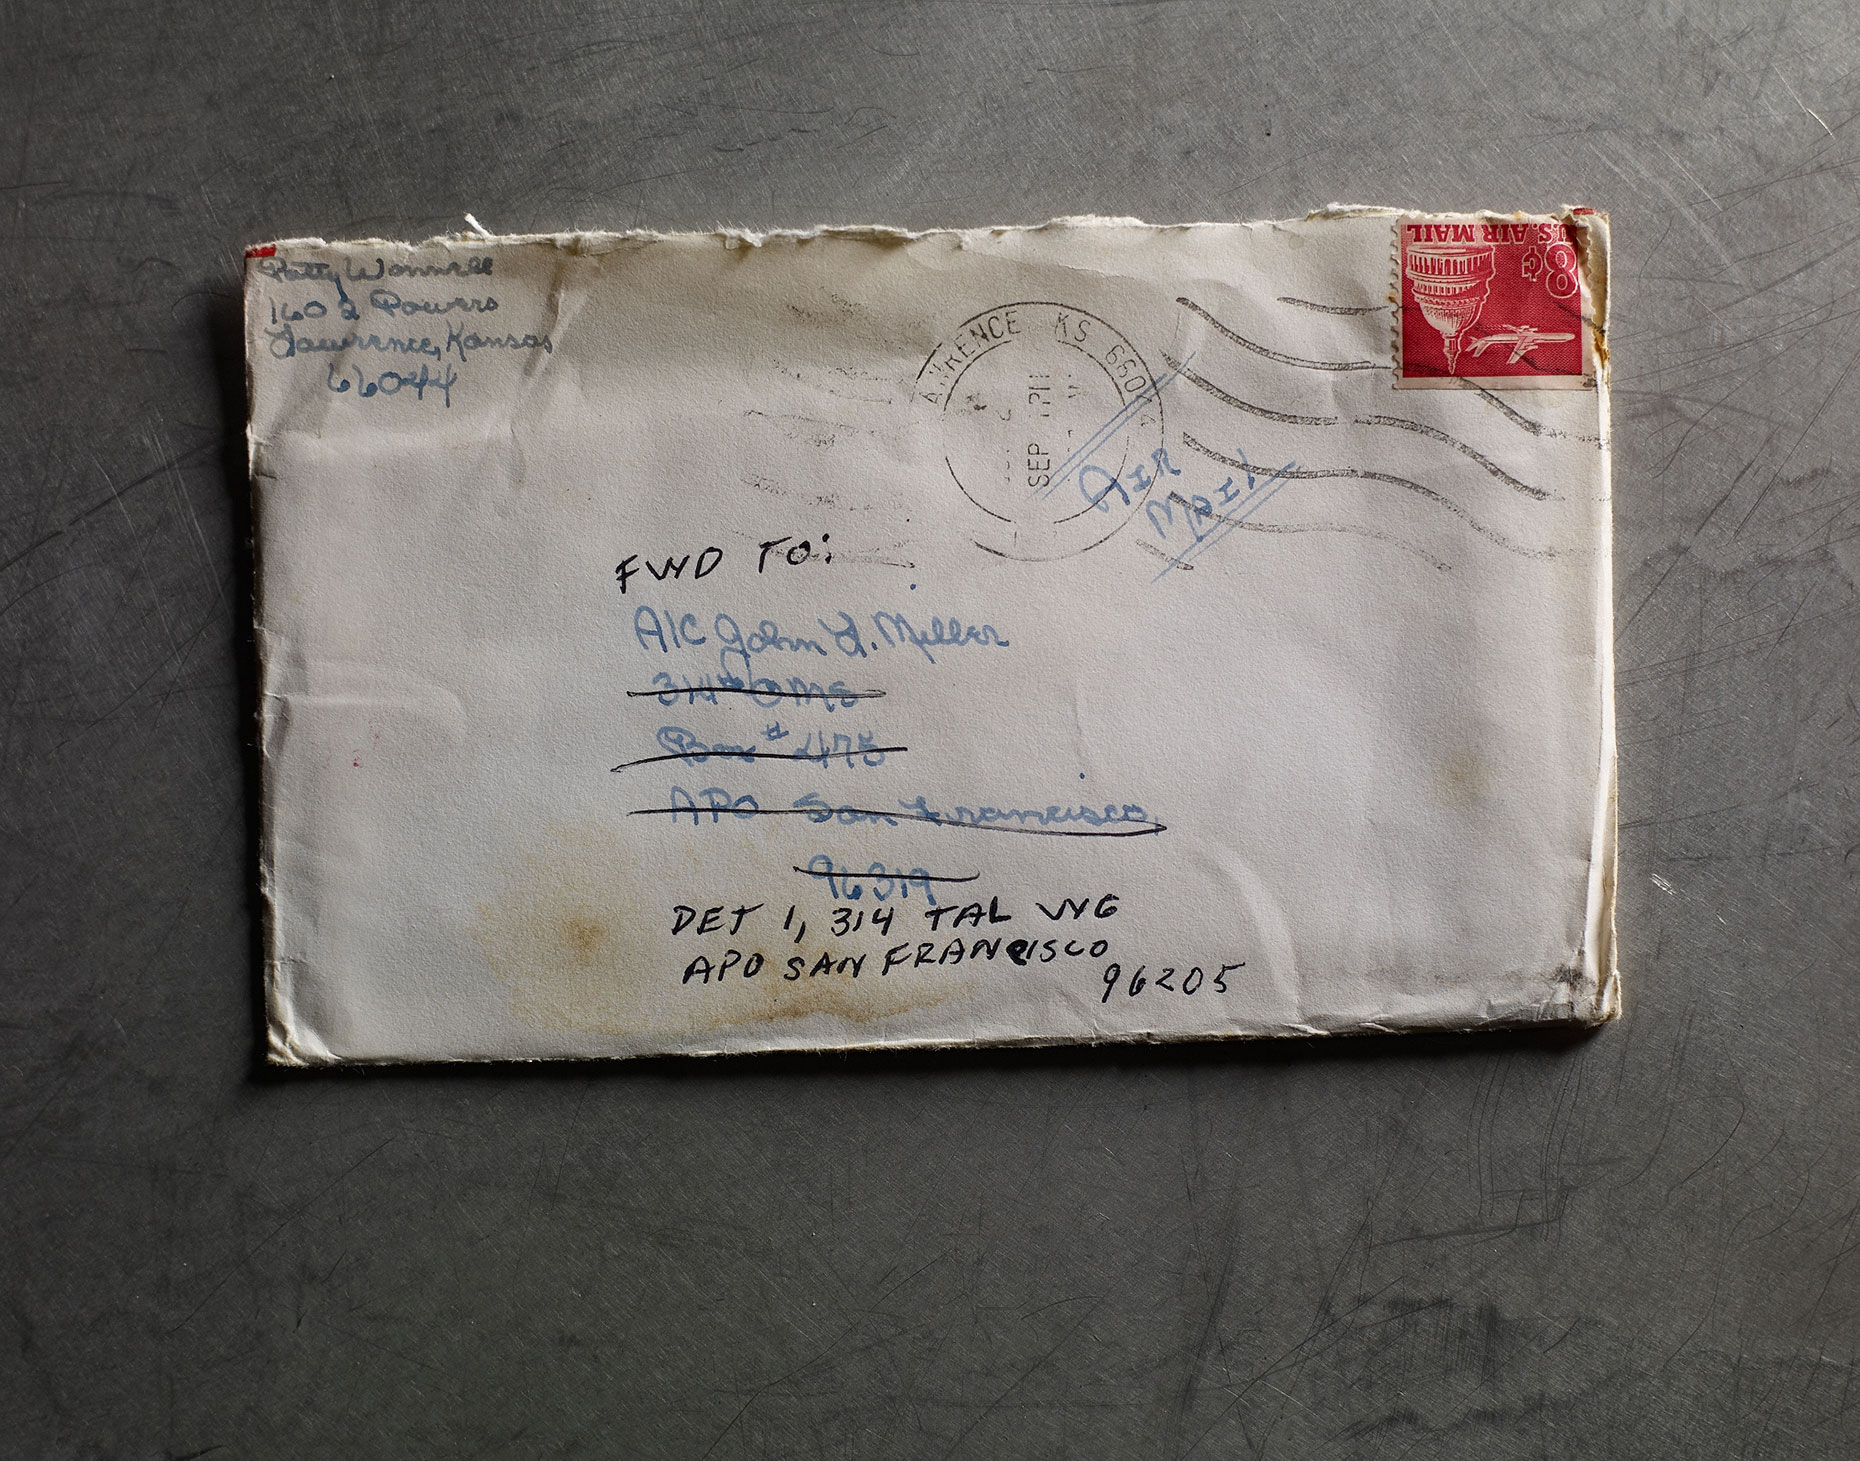 Patty Wannell
1602 Powers
Lawrence, Kansas
66044
LAWRENCE KS 66044
SEP
PM
U.S. AIR MAIL
8¢
AIR
MAIL
FWD TO:
A1C John L. Miller
314th OMS
Box # 2475
APO San Francisco,
96319
DET 1, 314 TAL WG
APO SAN FRANCISCO
96205